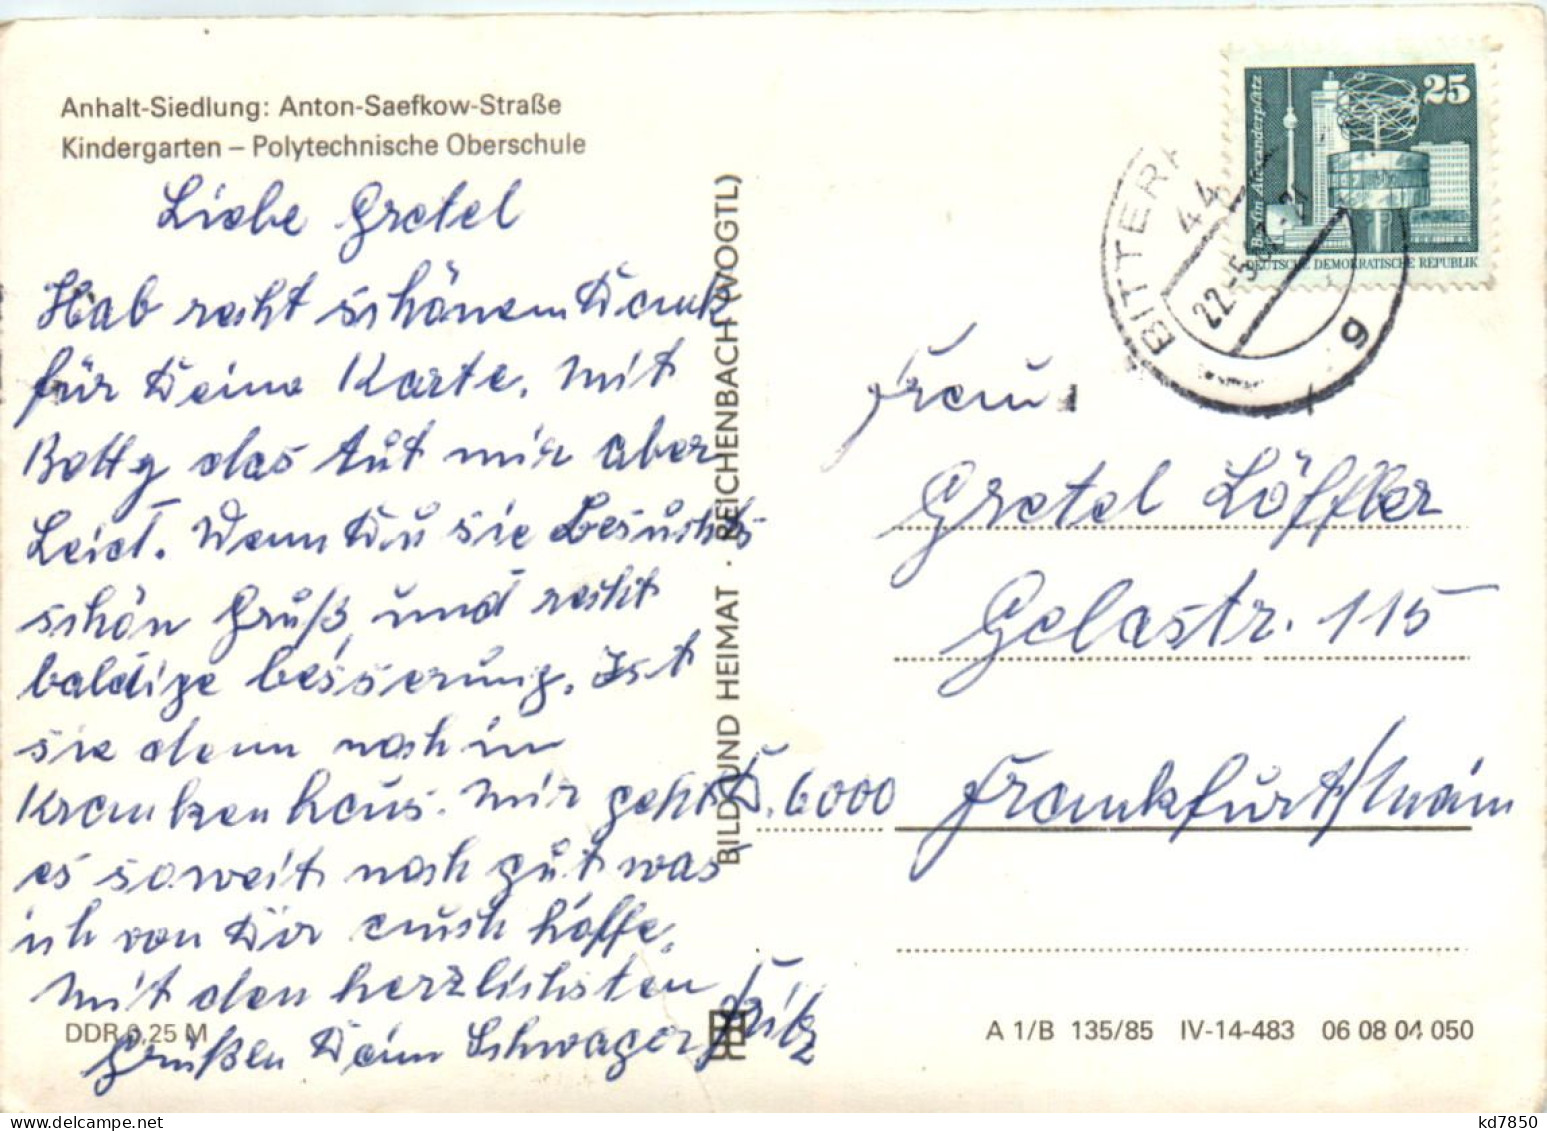 Anhalt-Siedlung: Anton-Saefkow-Straße
Kindergarten – Polytechnische Oberschule
Liebe Gretel
Hab recht schönen Dank
für Deine Karte. Mit
Betty das tut mir aber
Leid. Wenn Du sie besuchst
schön Gruß, und recht
baldige besserung. Ist
sie denn noch im
Krankenhaus. Mir geht
es soweit noch gut was
ich von Dir auch hoffe.
Mit den herzlichsten
Grüßen Dein Schwager Fritz
DDR 0,25 M
BILD UND HEIMAT · REICHENBACH (VOGTL)
25
Berlin Alexanderplatz
DEUTSCHE DEMOKRATISCHE REPUBLIK
BITTERF
44
22.-5.87-21
g
Frau
Gretel Löffler
Gelastr. 115
D. 6000 Frankfurt/Main
A 1/B 135/85 IV-14-483 06 08 04 050
kd7850